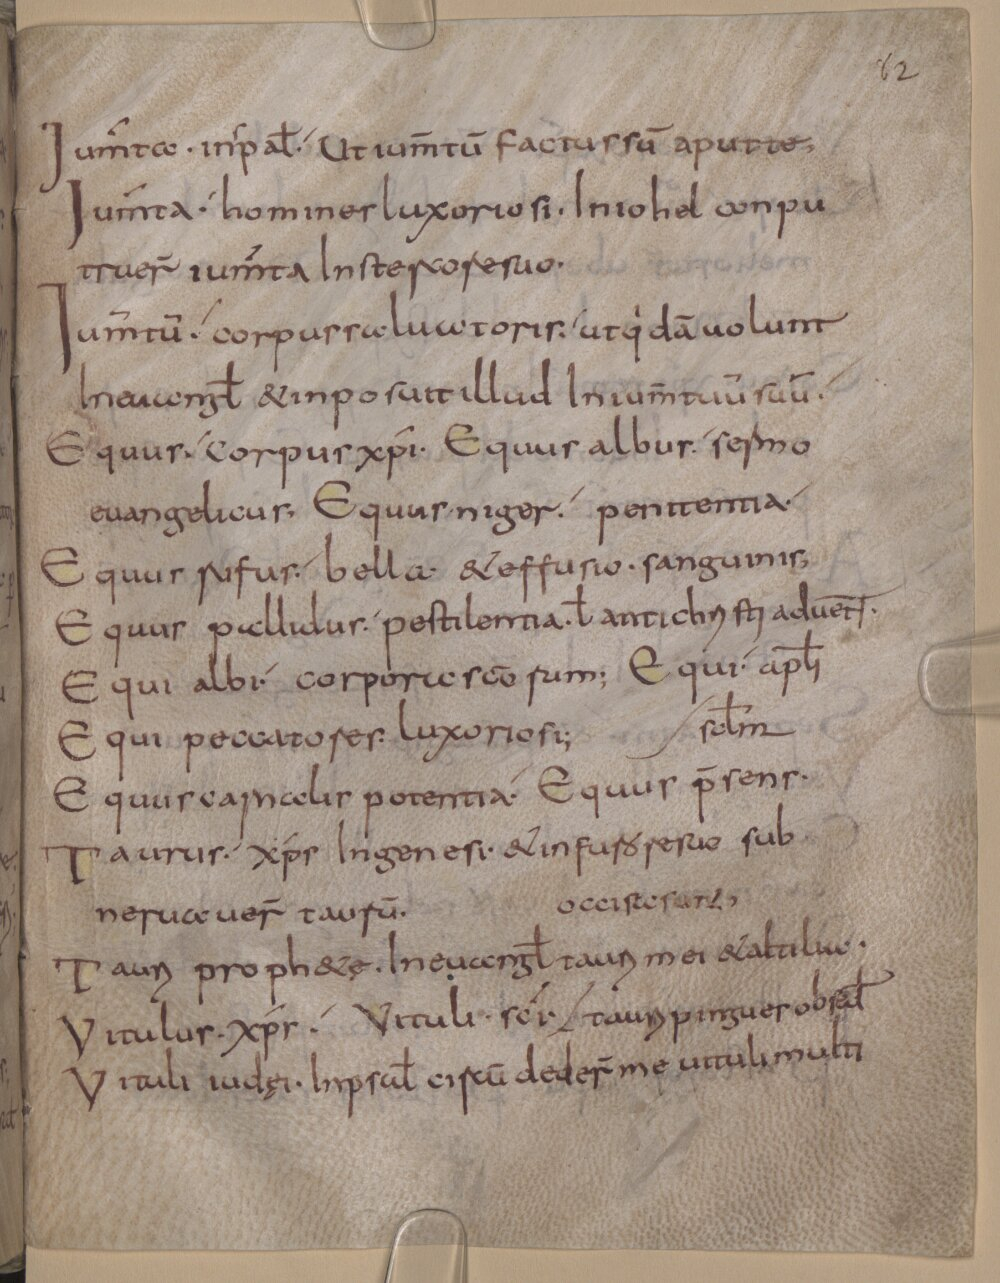 82
Jum̅ta · in ps̅al · Ut ium̅tū factus sū apud te;
Jum̅ta · homines luxoriosi · In iohel conpu
truer̅ ium̅ta In stercore suo ·
Jum̅tū · corpus saluatoris · ut qi dā uolunt
In euang̅l & inposuit illud In ium̅tuū suū ·
Equus · corpus xp̅i · Equus albus · sermo
euangelicus; Equus niger · penitentia ·
Equus rufus · bella · & effusio · sanguinis;
Equus pallidus · pestilentia · ł antichristi aduent̅
Equi albi · corpora sc̅orum; Equi · ap̅li
Equi peccatores · luxoriosi;
Equus carnalis potentia · Equus p̅sens · sc̅lm
Taurus · xp̅s In genesi · & in furore suo sub
neruauer̅ taurū ·
Tauri prophetę · In euang̅l tauri mei & altilia · occisa sunt;
Vitulus · xp̅s · Vituli · sc̅i · tauri pingues obsed̅
Vituli iudęi · In psal̅ circū deder̅ me uituli multi